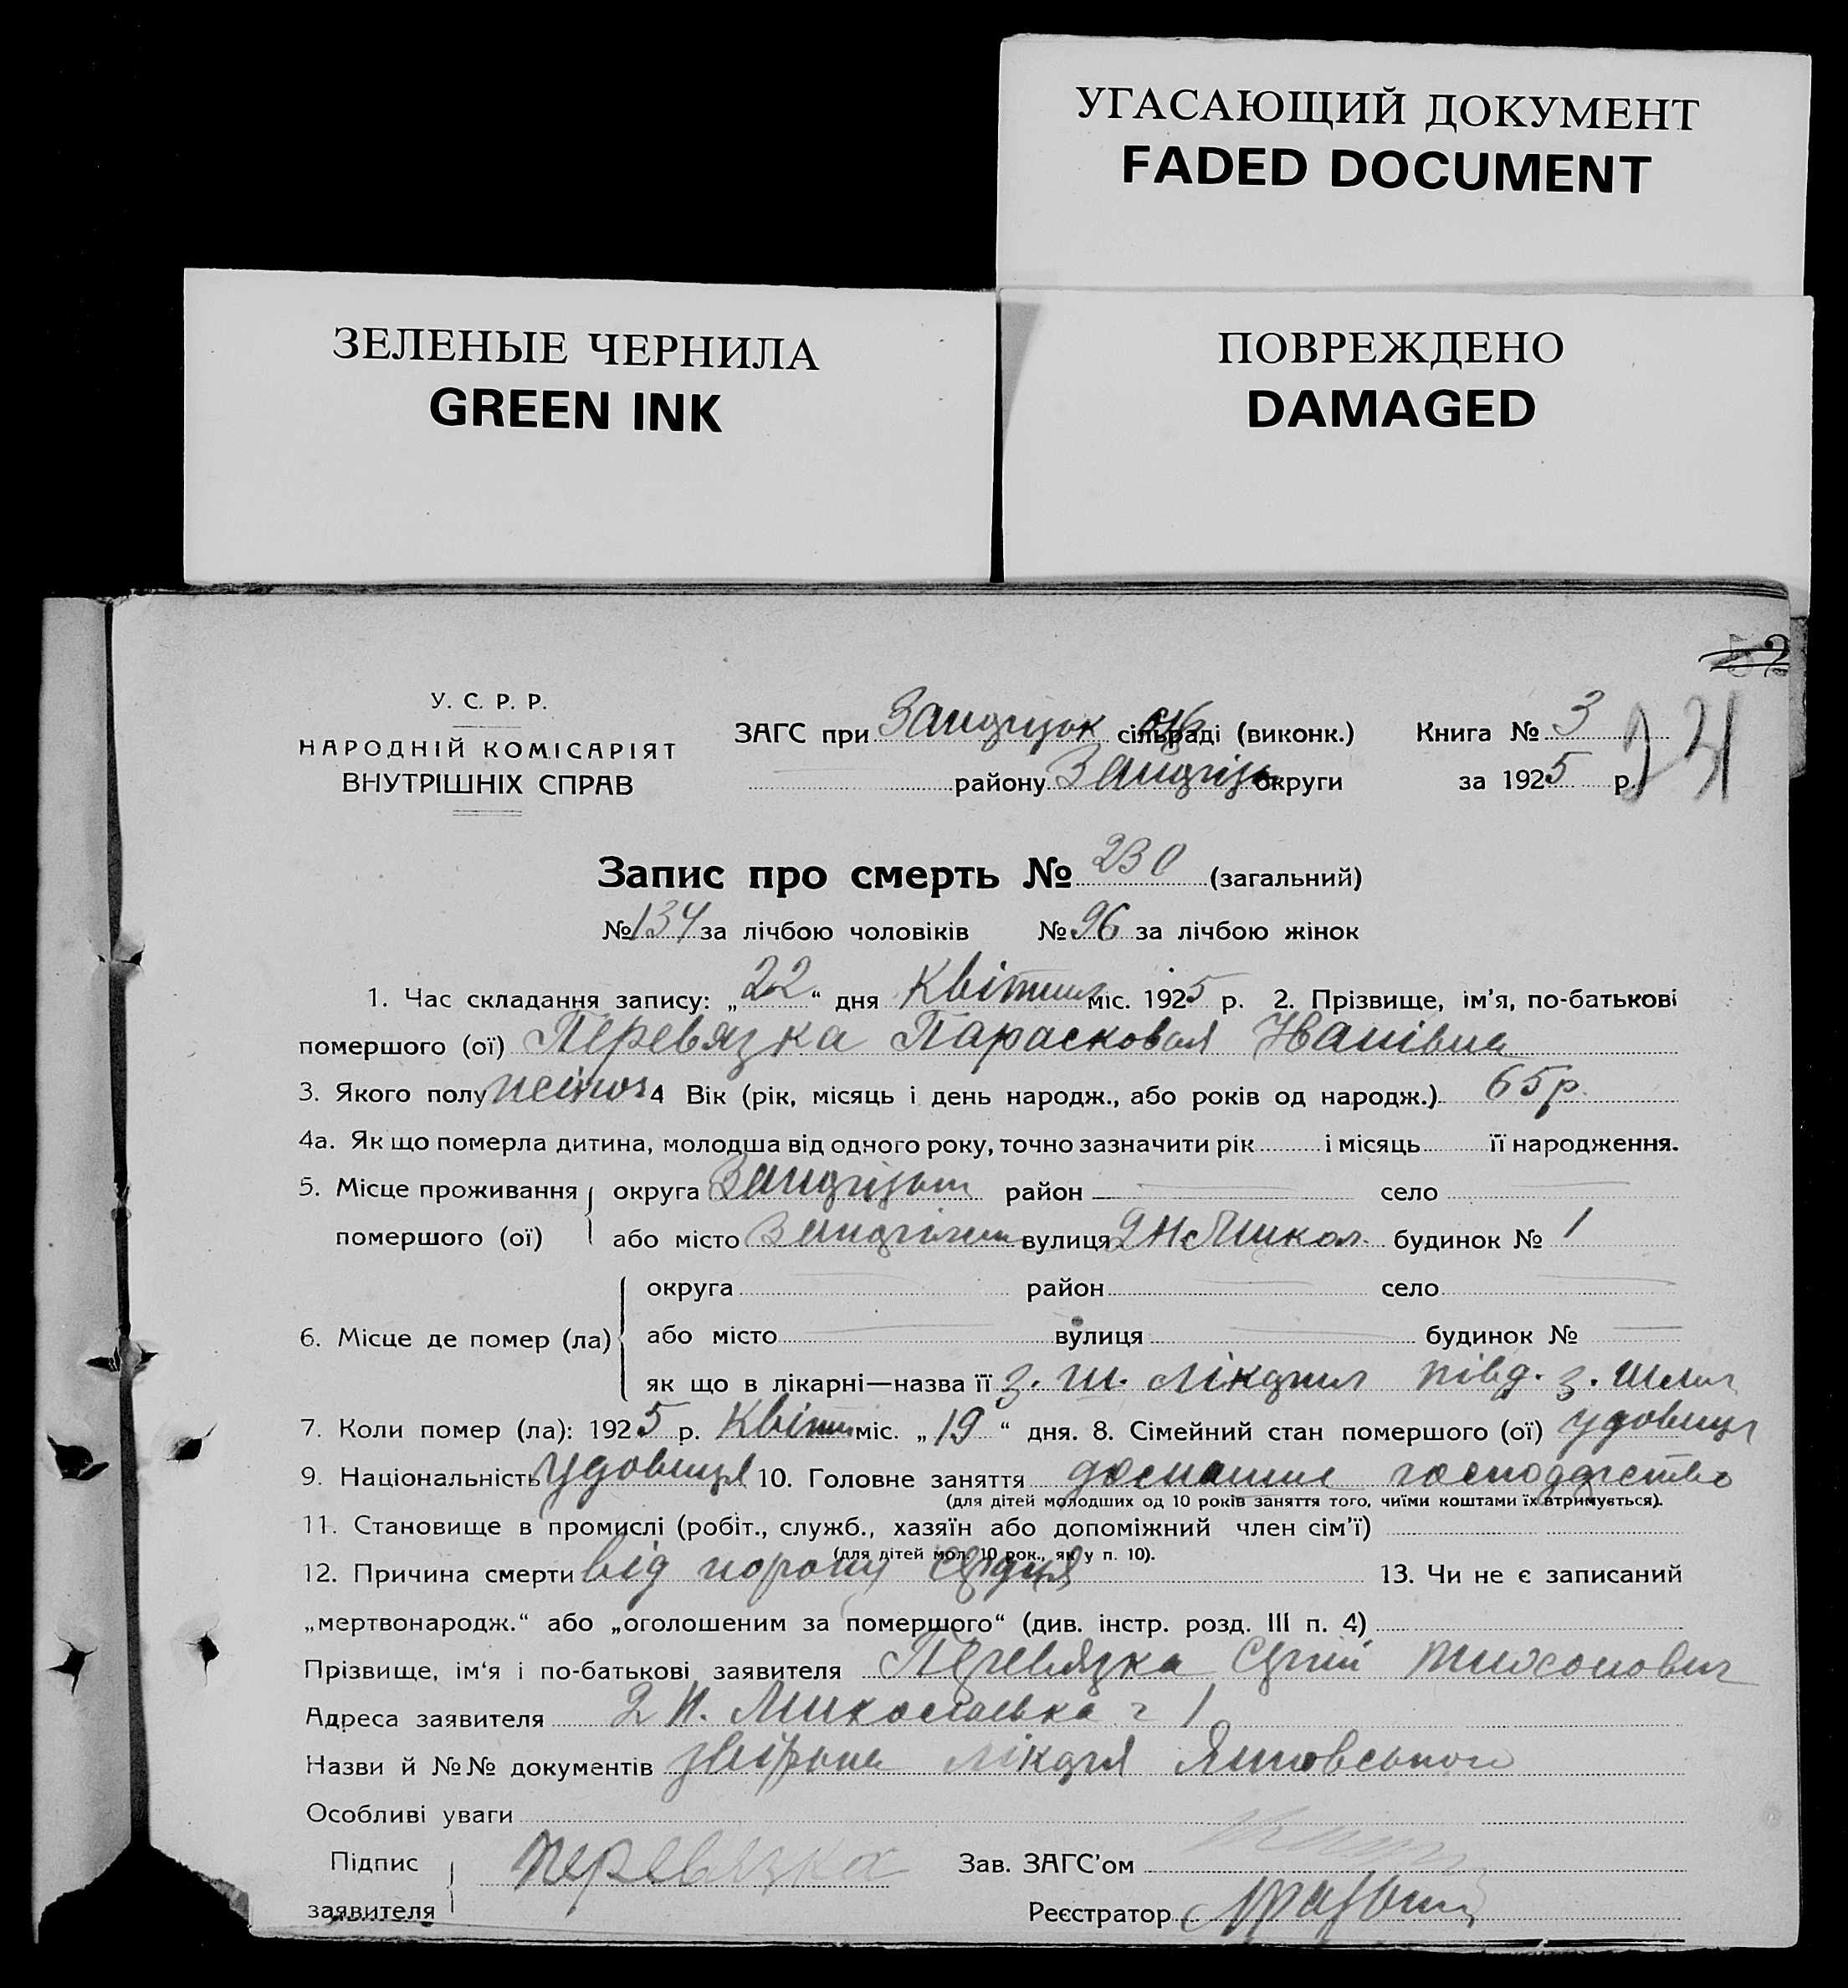 УГАСАЮЩИЙ ДОКУМЕНТ
FADED DOCUMENT
ЗЕЛЕНЫЕ ЧЕРНИЛА
GREEN INK
ПОВРЕЖДЕНО
DAMAGED
У. С. Р. Р.
НАРОДНІЙ КОМІСАРІЯТ
ВНУТРІШНІХ СПРАВ
ЗАГС при сільраді (виконк.)
району округи
Книга № 3
за 1925 р.
Запис про смерть № 230 (загальний)
№ 134 за лічбою чоловіків № 96 за лічбою жінок
1. Час складання запису: „22“ дня Квітня міс. 1925 р. 2. Прізвище, ім’я, по-батькові
помершого (ої) Перевязка Парасковая Іванівна
3. Якого полу 4 Вік (рік, місяць і день народж., або років од народж.) 65 р.
4а. Як що померла дитина, молодша від одного року, точно зазначити рік і місяць її народження.
5. Місце проживання округа район село
помершого (ої) або місто вулиця будинок № 1
округа район село
6. Місце де помер (ла) або місто вулиця будинок №
як що в лікарні—назва її
7. Коли помер (ла): 1925 р. Квітня міс. „19“ дня. 8. Сімейний стан помершого (ої) удовиця
9. Національність удовиця 10. Головне заняття домашнє господарство
(для дітей молодших од 10 років заняття того, чиїми коштами їх втримується).
11. Становище в промислі (робіт., служб., хазяїн або допоміжний член сім’ї)
(для дітей мол. 10 рок., як у п. 10).
12. Причина смерти від пороку серця 13. Чи не є записаний
„мертвонародж.“ або „оголошеним за помершого“ (див. інстр. розд. III п. 4)
Прізвище, ім‘я і по-батькові заявителя Перевязка Сергій
Адреса заявителя 2 Н. Миколаївка 1
Назви й №№ документів лікаря
Особливі уваги
Підпис Перевязка Зав. ЗАГС’ом
заявителя Реєстратор